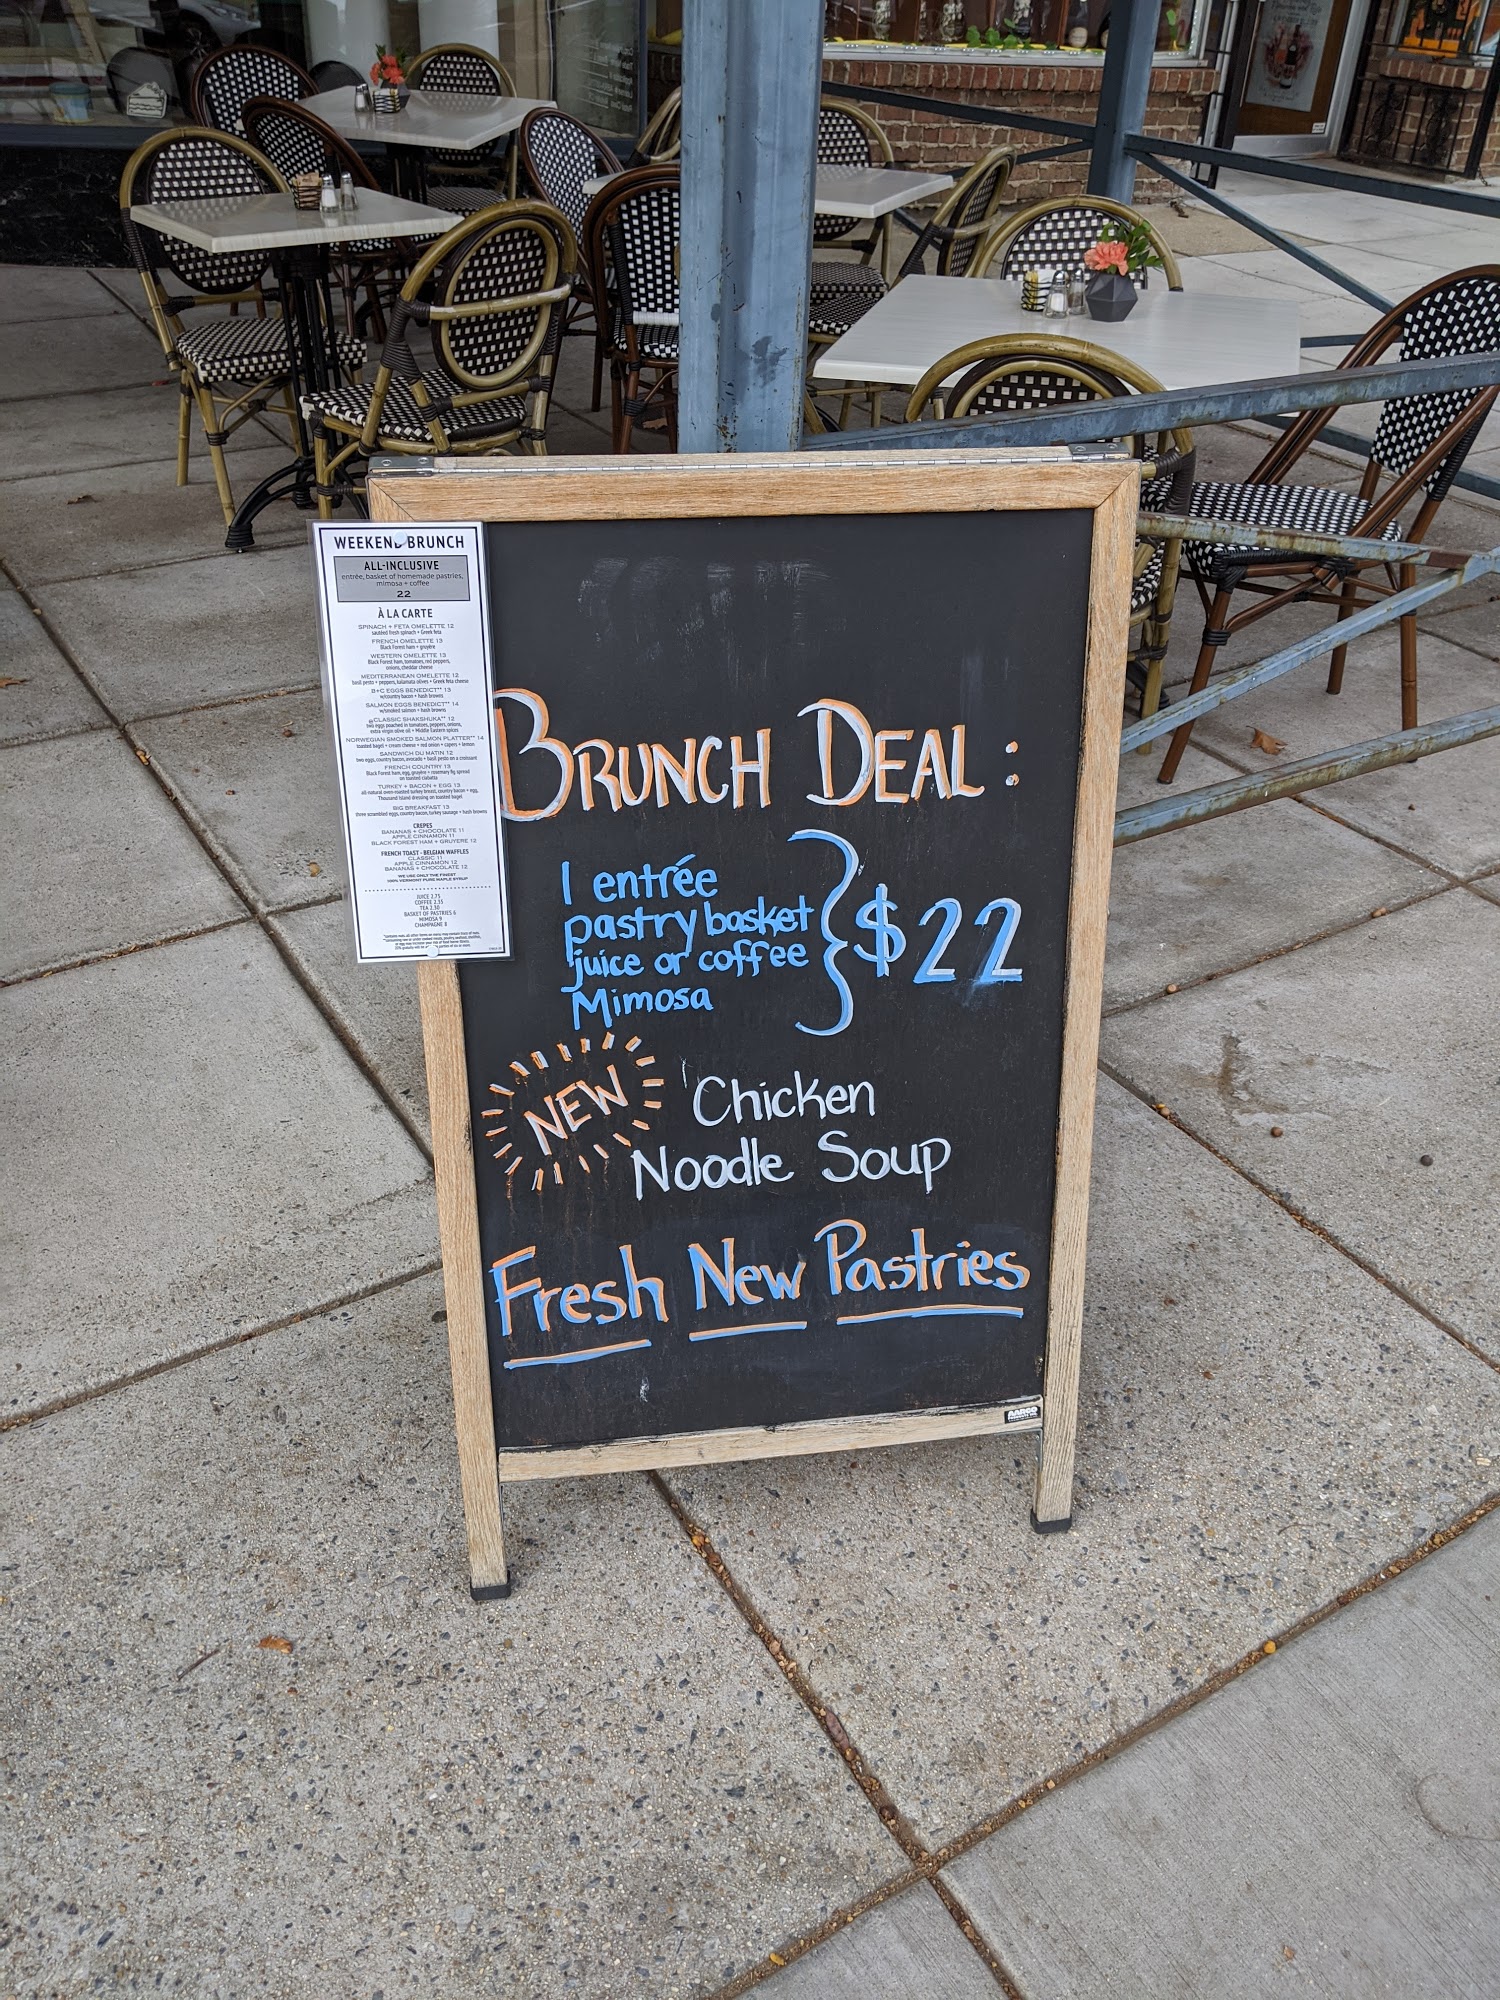 WEEKEND BRUNCH
ALL-INCLUSIVE
entrée, basket of homemade pastries,
mimosa + coffee
22
À LA CARTE
SPINACH + FETA OMELETTE 12
sautéed fresh spinach + Greek feta
FRENCH OMELETTE 13
Black Forest ham + gruyère
WESTERN OMELETTE 13
Black Forest ham, tomatoes, red peppers,
onions, cheddar cheese
MEDITERRANEAN OMELETTE 12
basil pesto + peppers, kalamata olives + Greek feta cheese
B+C EGGS BENEDICT** 13
w/country bacon + hash browns
SALMON EGGS BENEDICT** 14
w/smoked salmon + hash browns
CLASSIC SHAKSHUKA** 12
two eggs poached in tomatoes, peppers, onions,
extra virgin olive oil + Middle Eastern spices
NORWEGIAN SMOKED SALMON PLATTER** 14
toasted bagel + cream cheese + red onion + capers + lemon
SANDWICH DU MATIN 12
two eggs, country bacon, avocado + basil pesto on a croissant
FRENCH COUNTRY 13
Black Forest ham, egg, gruyère + rosemary fig spread
on toasted ciabatta
TURKEY + BACON + EGG 13
all-natural oven-roasted turkey breast, country bacon + egg,
Thousand Island dressing on toasted bagel
BIG BREAKFAST 13
three scrambled eggs, country bacon, turkey sausage + hash browns
CREPES
BANANAS + CHOCOLATE 11
APPLE CINNAMON 11
BLACK FOREST HAM + GRUYERE 12
FRENCH TOAST - BELGIAN WAFFLES
CLASSIC 11
APPLE CINNAMON 12
BANANAS + CHOCOLATE 12
WE USE ONLY THE FINEST
100% VERMONT PURE MAPLE SYRUP
JUICE 2.75
COFFEE 2.35
TEA 2.30
BASKET OF PASTRIES 6
MIMOSA 9
CHAMPAGNE 8
BRUNCH DEAL :
1 entrée
pastry basket
juice or coffee
Mimosa
$22
NEW
Chicken
Noodle Soup
Fresh New Pastries
AARCO